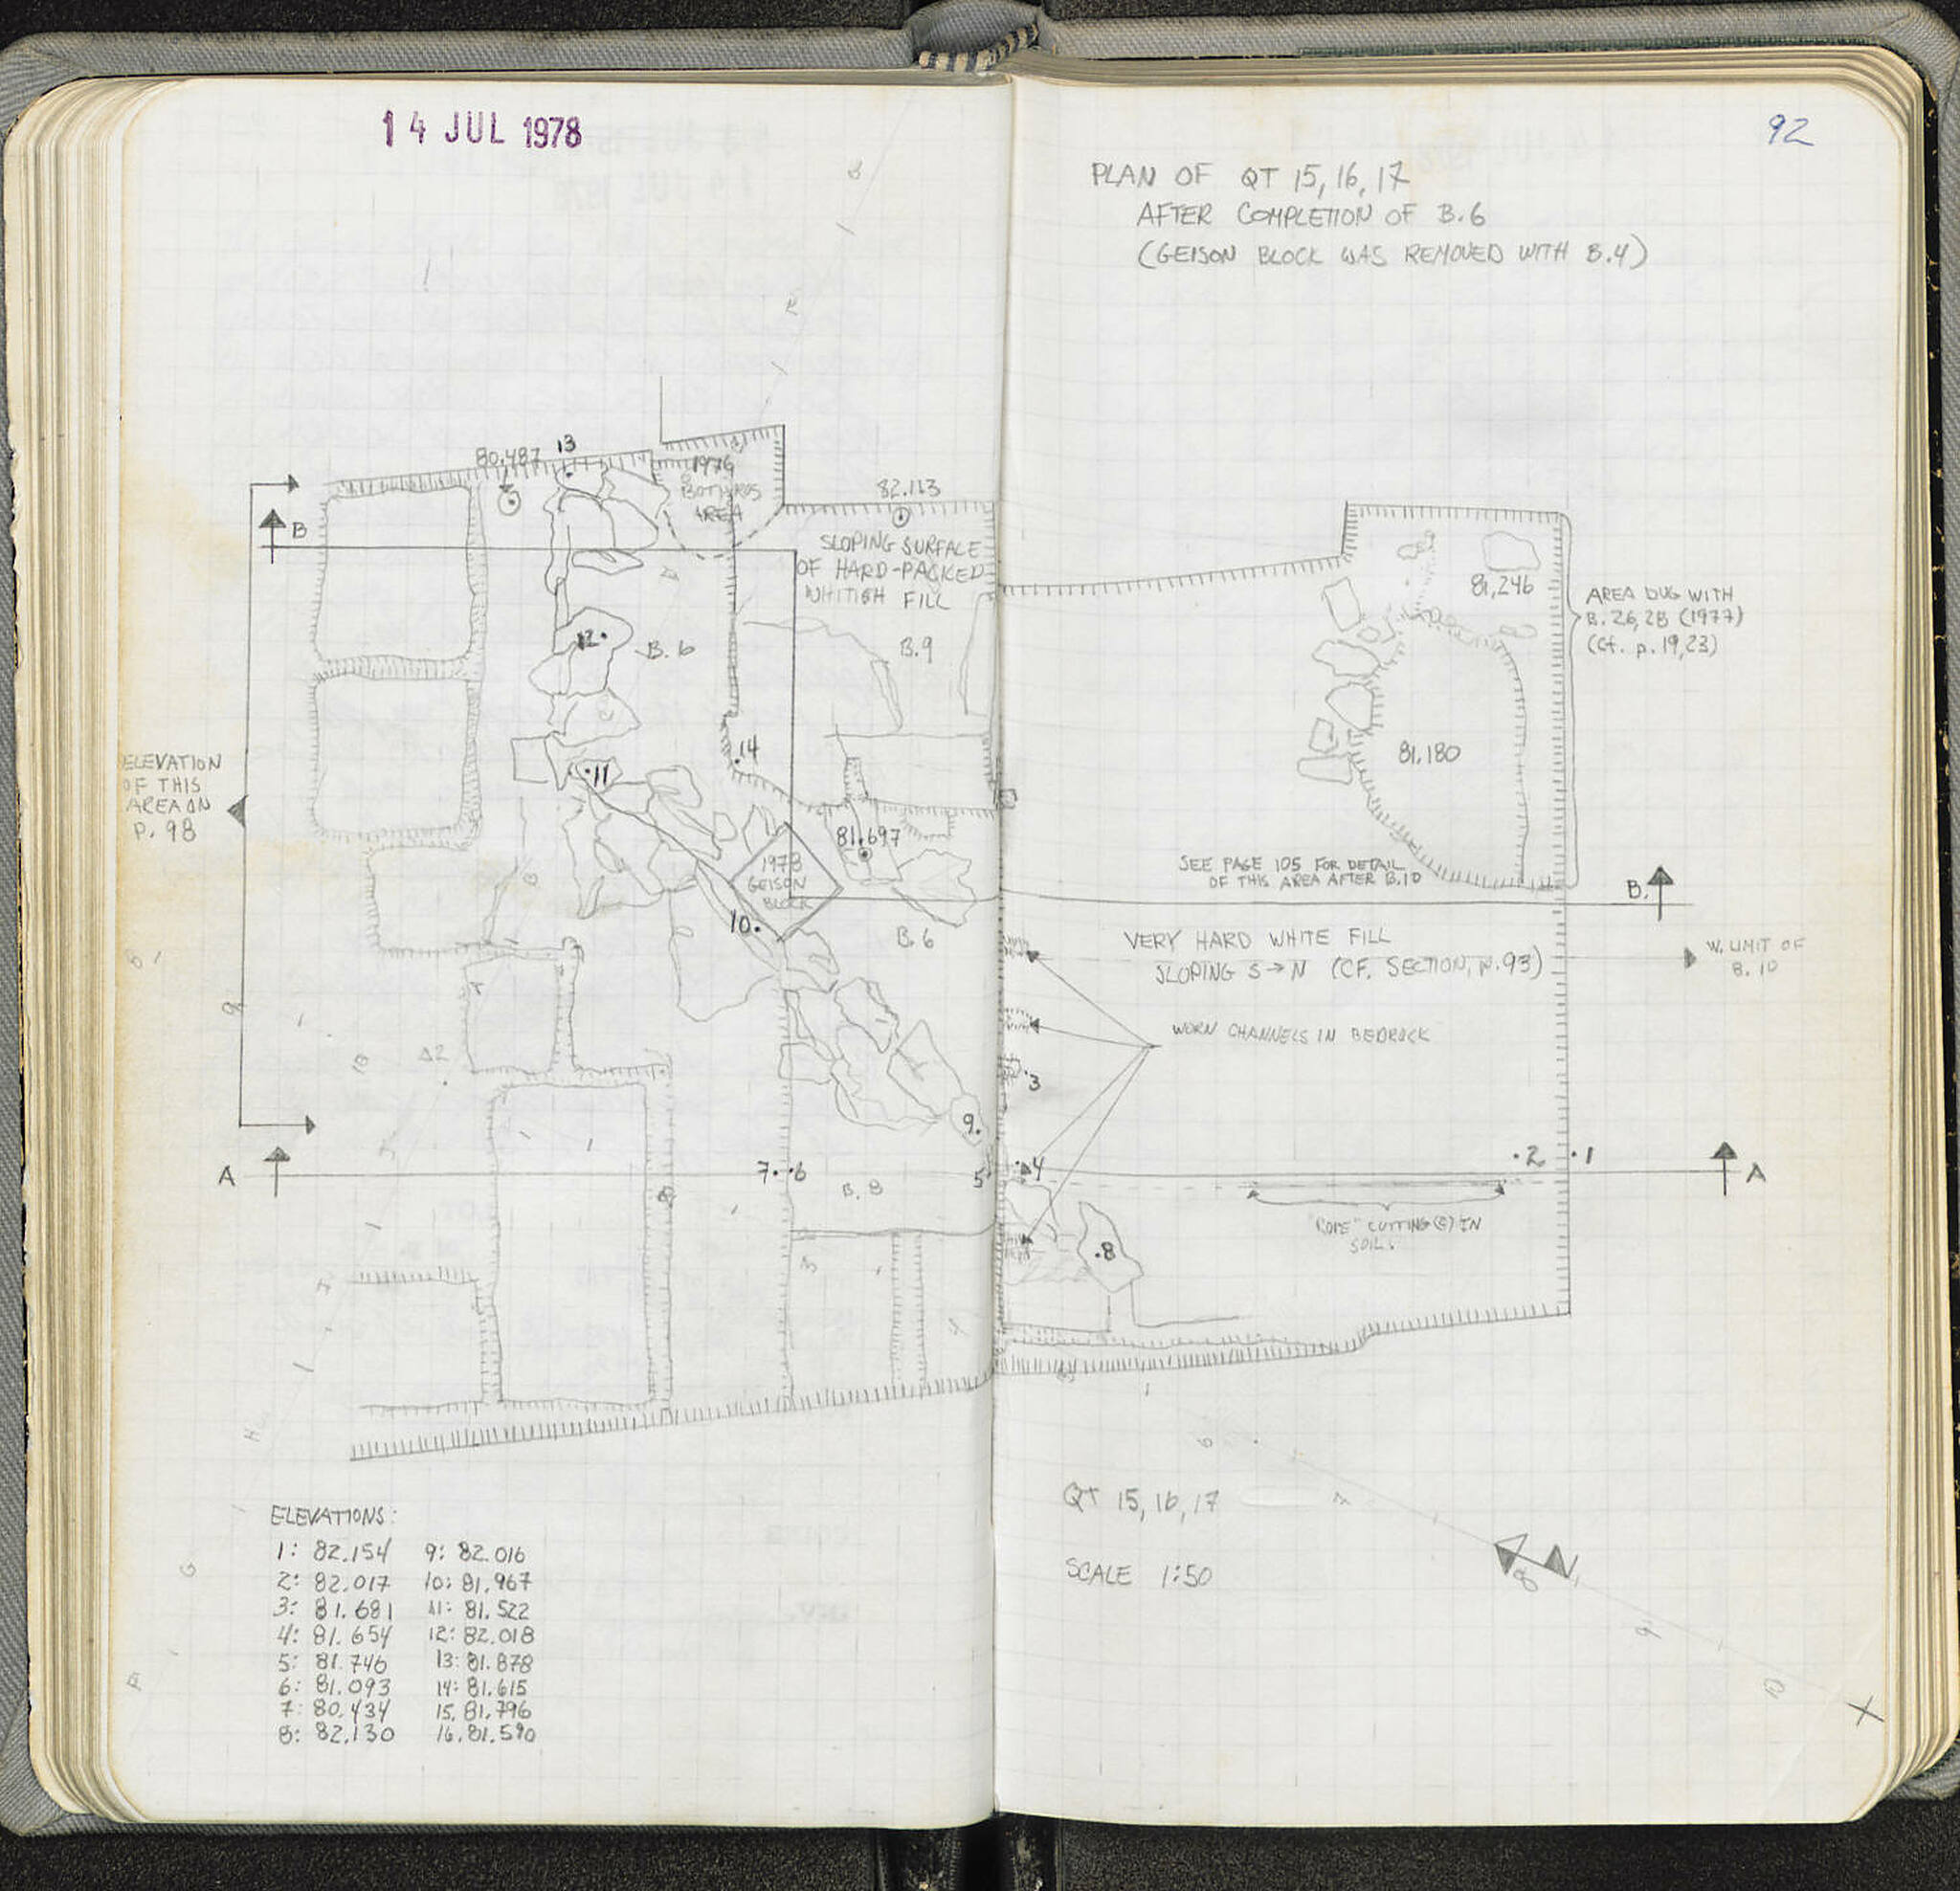 14 JUL 1978
92
PLAN OF QT 15, 16, 17
AFTER COMPLETION OF B.6
(GEISON BLOCK WAS REMOVED WITH B.4)
80.487
13
1976
BOTHROS
AREA
82.113
SLOPING SURFACE
OF HARD-PACKED
WHITISH FILL
B
12
B.6
B.9
14
11
ELEVATION
OF THIS
AREA ON
P. 98
81.697
1978
GEISON
BLOCK
10
B.6
9
A
7
6
5
B.8
81,246
AREA DUG WITH
B. 26, 28 (1977)
(Cf. p. 19, 23)
81,180
SEE PAGE 105 FOR DETAIL
OF THIS AREA AFTER B.10
B.
VERY HARD WHITE FILL
SLOPING S→N (CF. SECTION, p. 93)
W. LIMIT OF
B. 10
WORN CHANNELS IN BEDROCK
3
4
2
1
A
"ROPE" CUTTING(S) IN
SOIL.
8
ELEVATIONS:
1: 82.154
2: 82.017
3: 81.681
4: 81.654
5: 81.746
6: 81.093
7: 80.434
8: 82.130
9: 82.016
10: 81.967
11: 81.522
12: 82.018
13: 81.878
14: 81.615
15. 81.796
16. 81.590
QT 15, 16, 17
SCALE 1:50
N
6
7
8
9
10